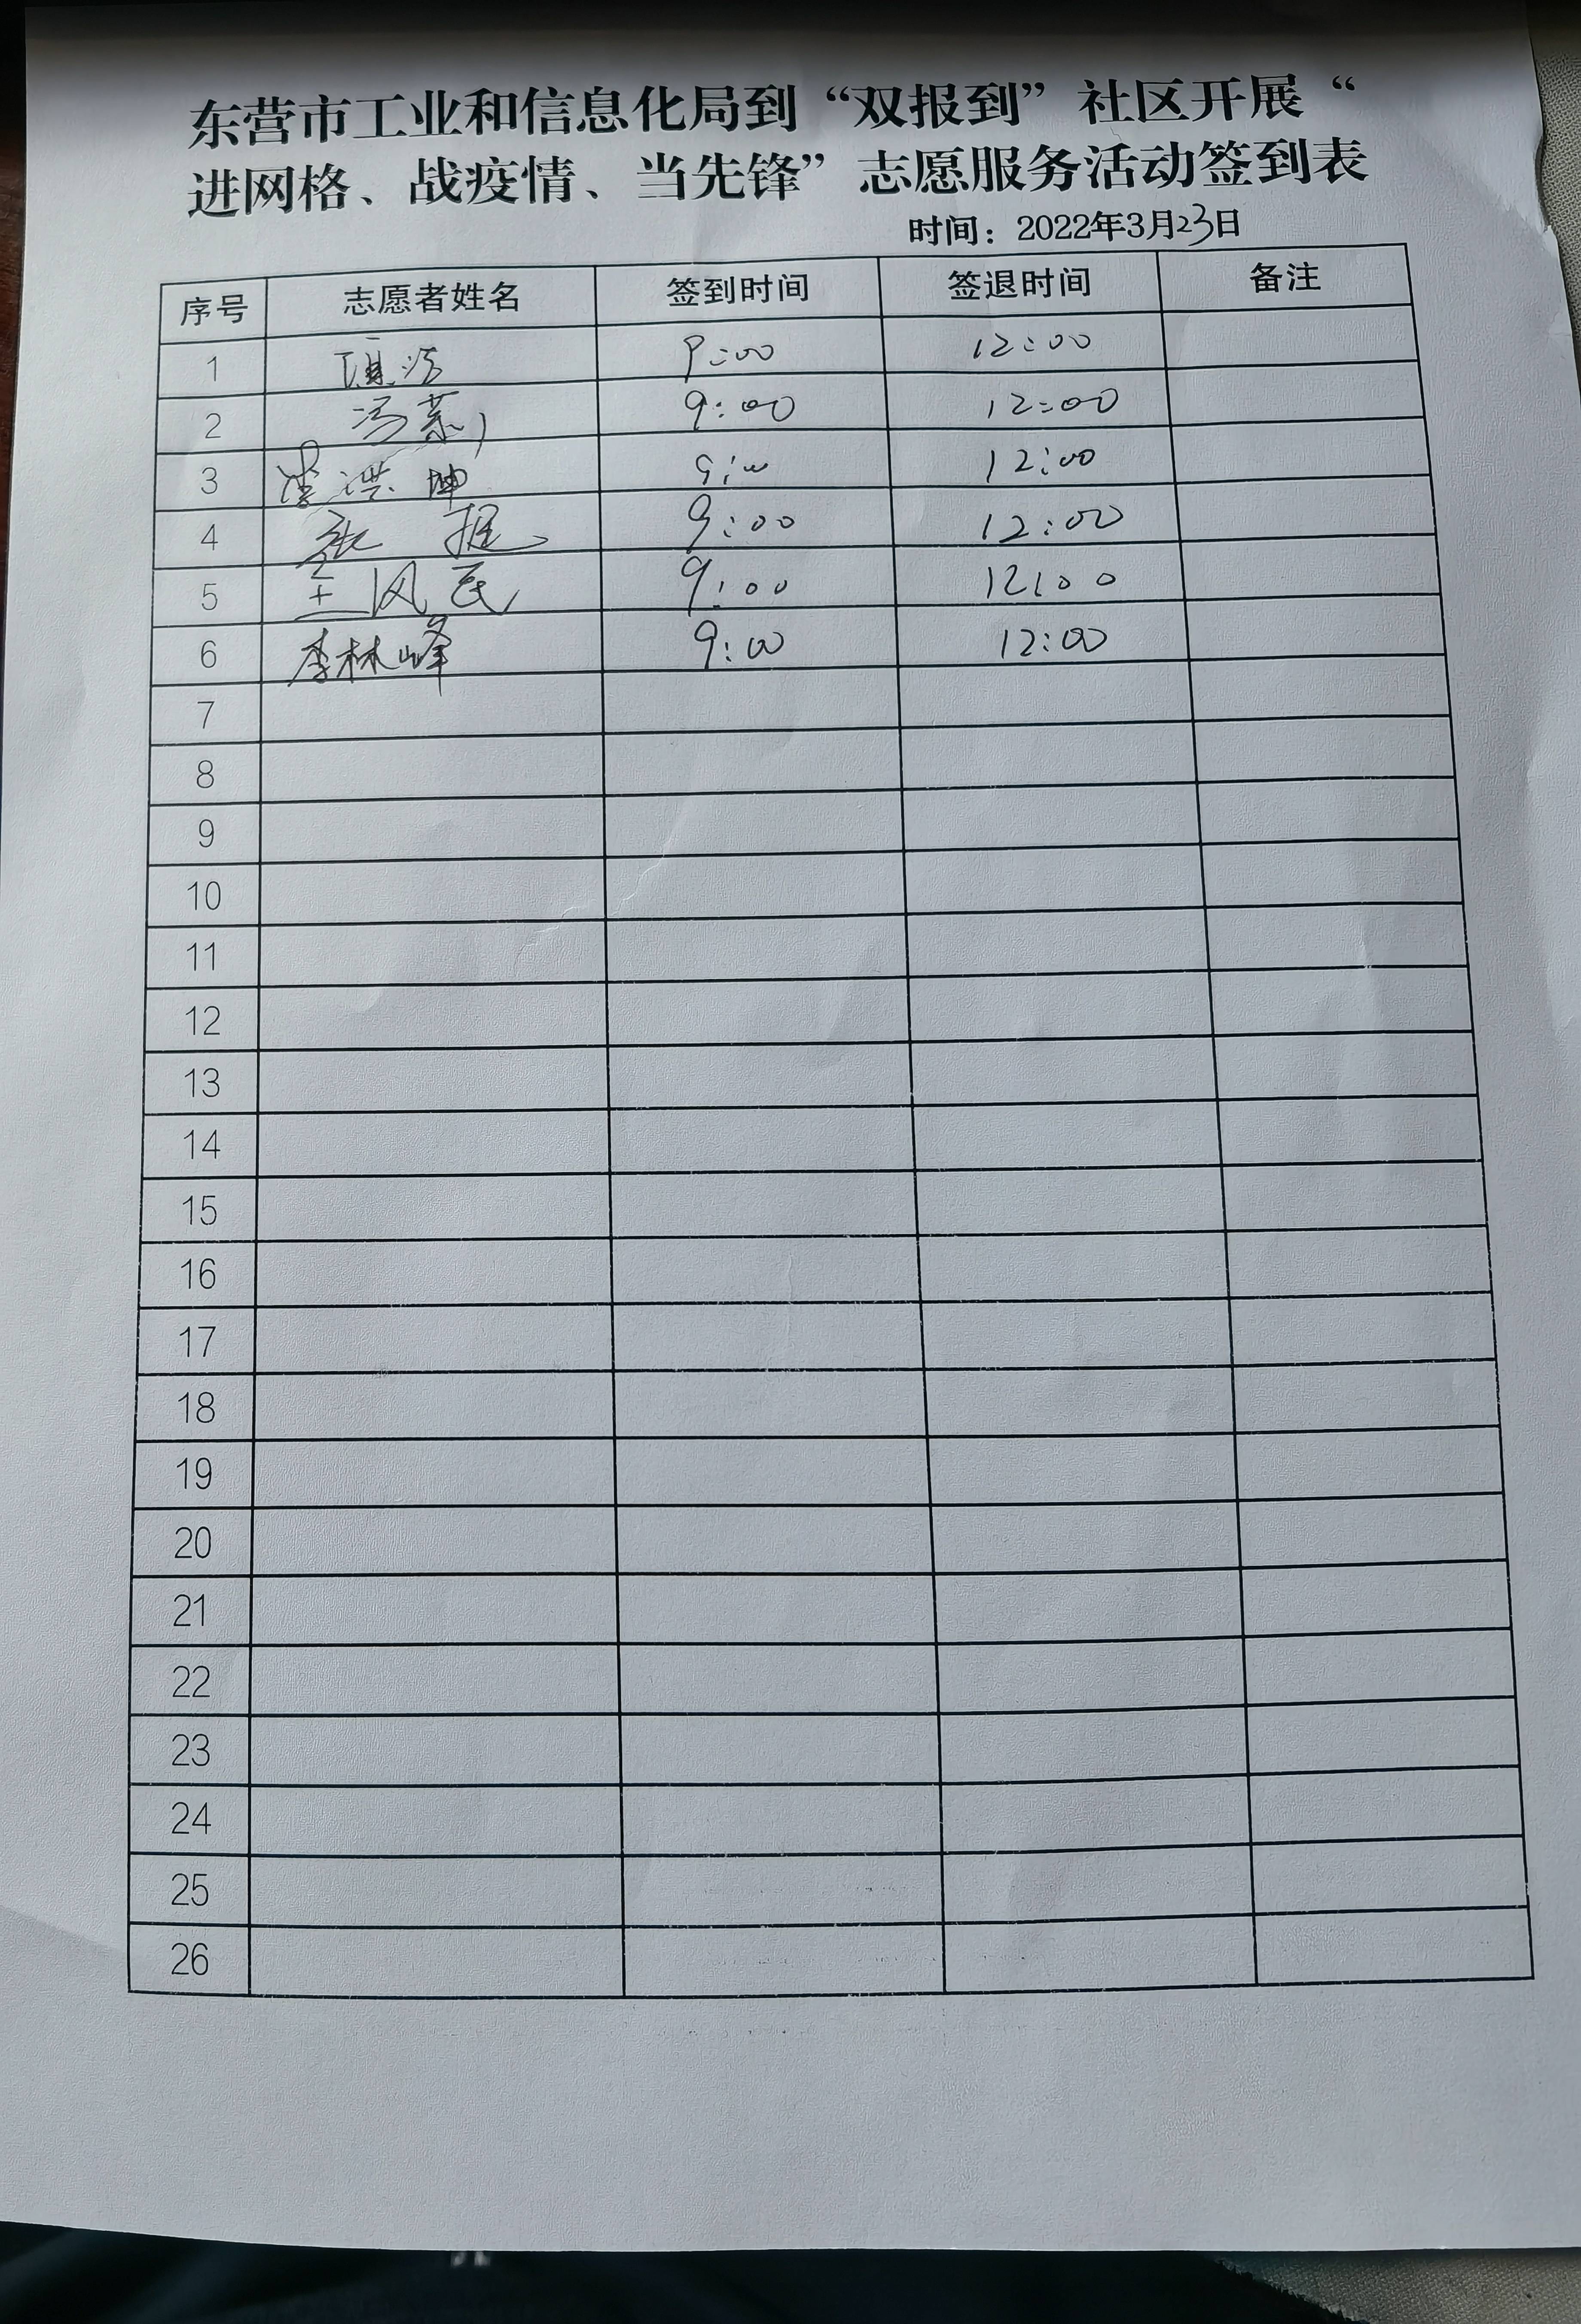 东营市工业和信息化局到“双报到”社区开展“
进网格、战疫情、当先锋”志愿服务活动签到表
时间：2022年3月23日
序号 志愿者姓名 签到时间 签退时间 备注
1 9:00 12:00
2 冯 9:00 12:00
3 李洪坤 9:00 12:00
4 张 9:00 12:00
5 王风民 9:00 12:00
6 李林峰 9:00 12:00
7
8
9
10
11
12
13
14
15
16
17
18
19
20
21
22
23
24
25
26